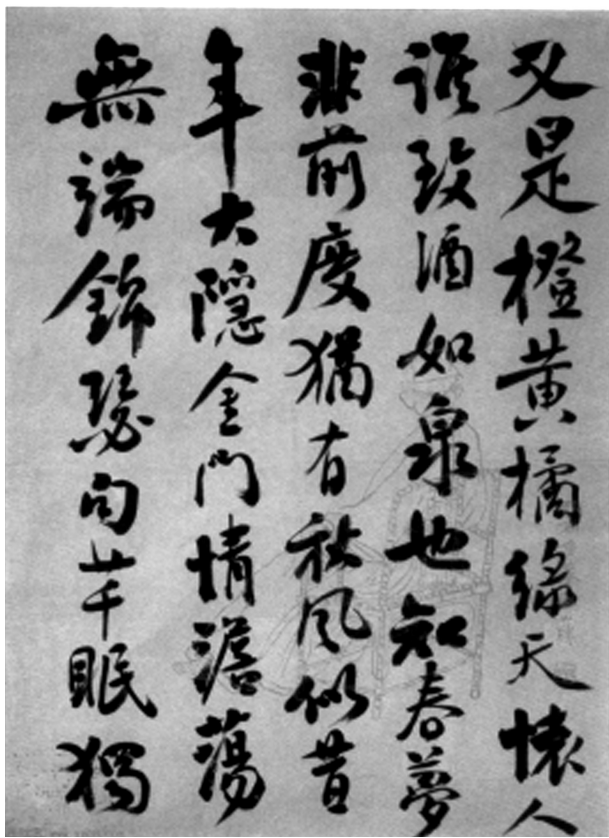 又是橙黄橘緑天懷人
誰致酒如泉也知春夢
非前度猶有秋風似昔
年大隱金門情澹蕩
無端錦瑟句芊眠獨